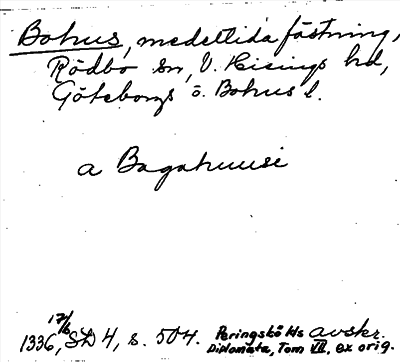 Bohus, medeltida fästning,
Rödbo sn, V. Hisings hd,
Göteborgs o. Bohus l.
a Bagahuusi
17/6 1336, SD 4, s. 504. Peringskölds avskr.
Diplomata, Tom VII, ex orig.